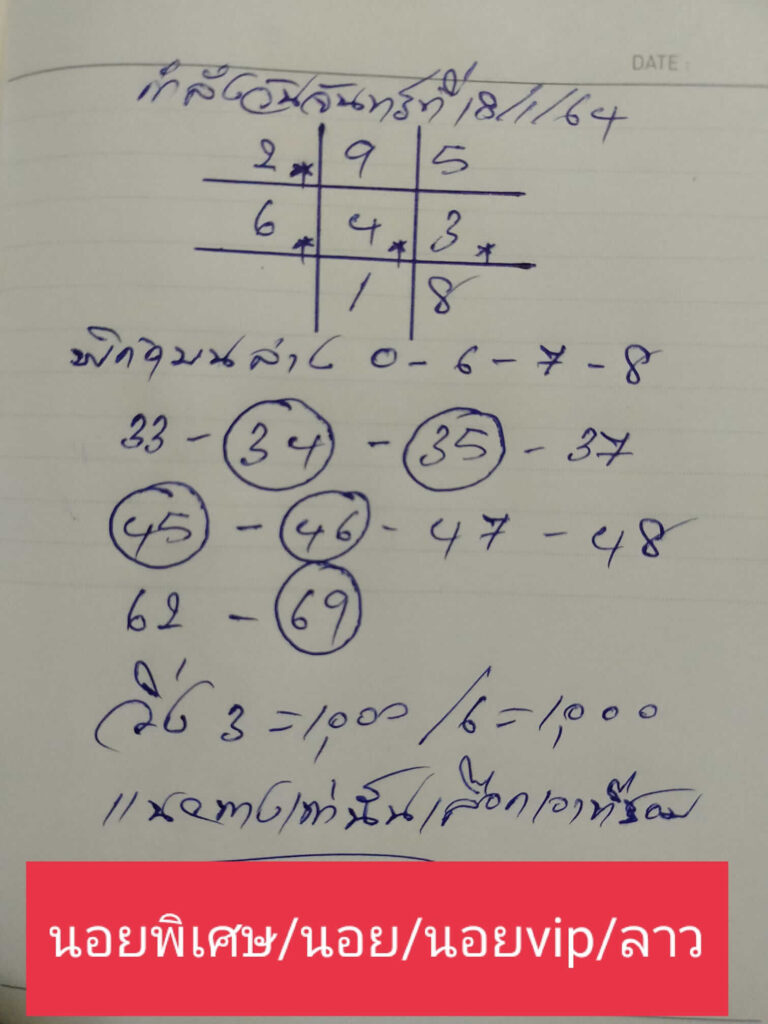 DATE :
กำลังวันจันทร์ที่ 18/1/64
2 * 9 5
6 * 4 * 3 *
1 8
บนล่าง 0 - 6 - 7 - 8
33 - 34 - 35 - 37
45 - 46 - 47 - 48
62 - 69
วิ่ง 3 = 1,000 / 6 = 1,000
แนวทางเท่านั้นเลือกเอาที่ชอบ
นอยพิเศษ/นอย/นอยvip/ลาว